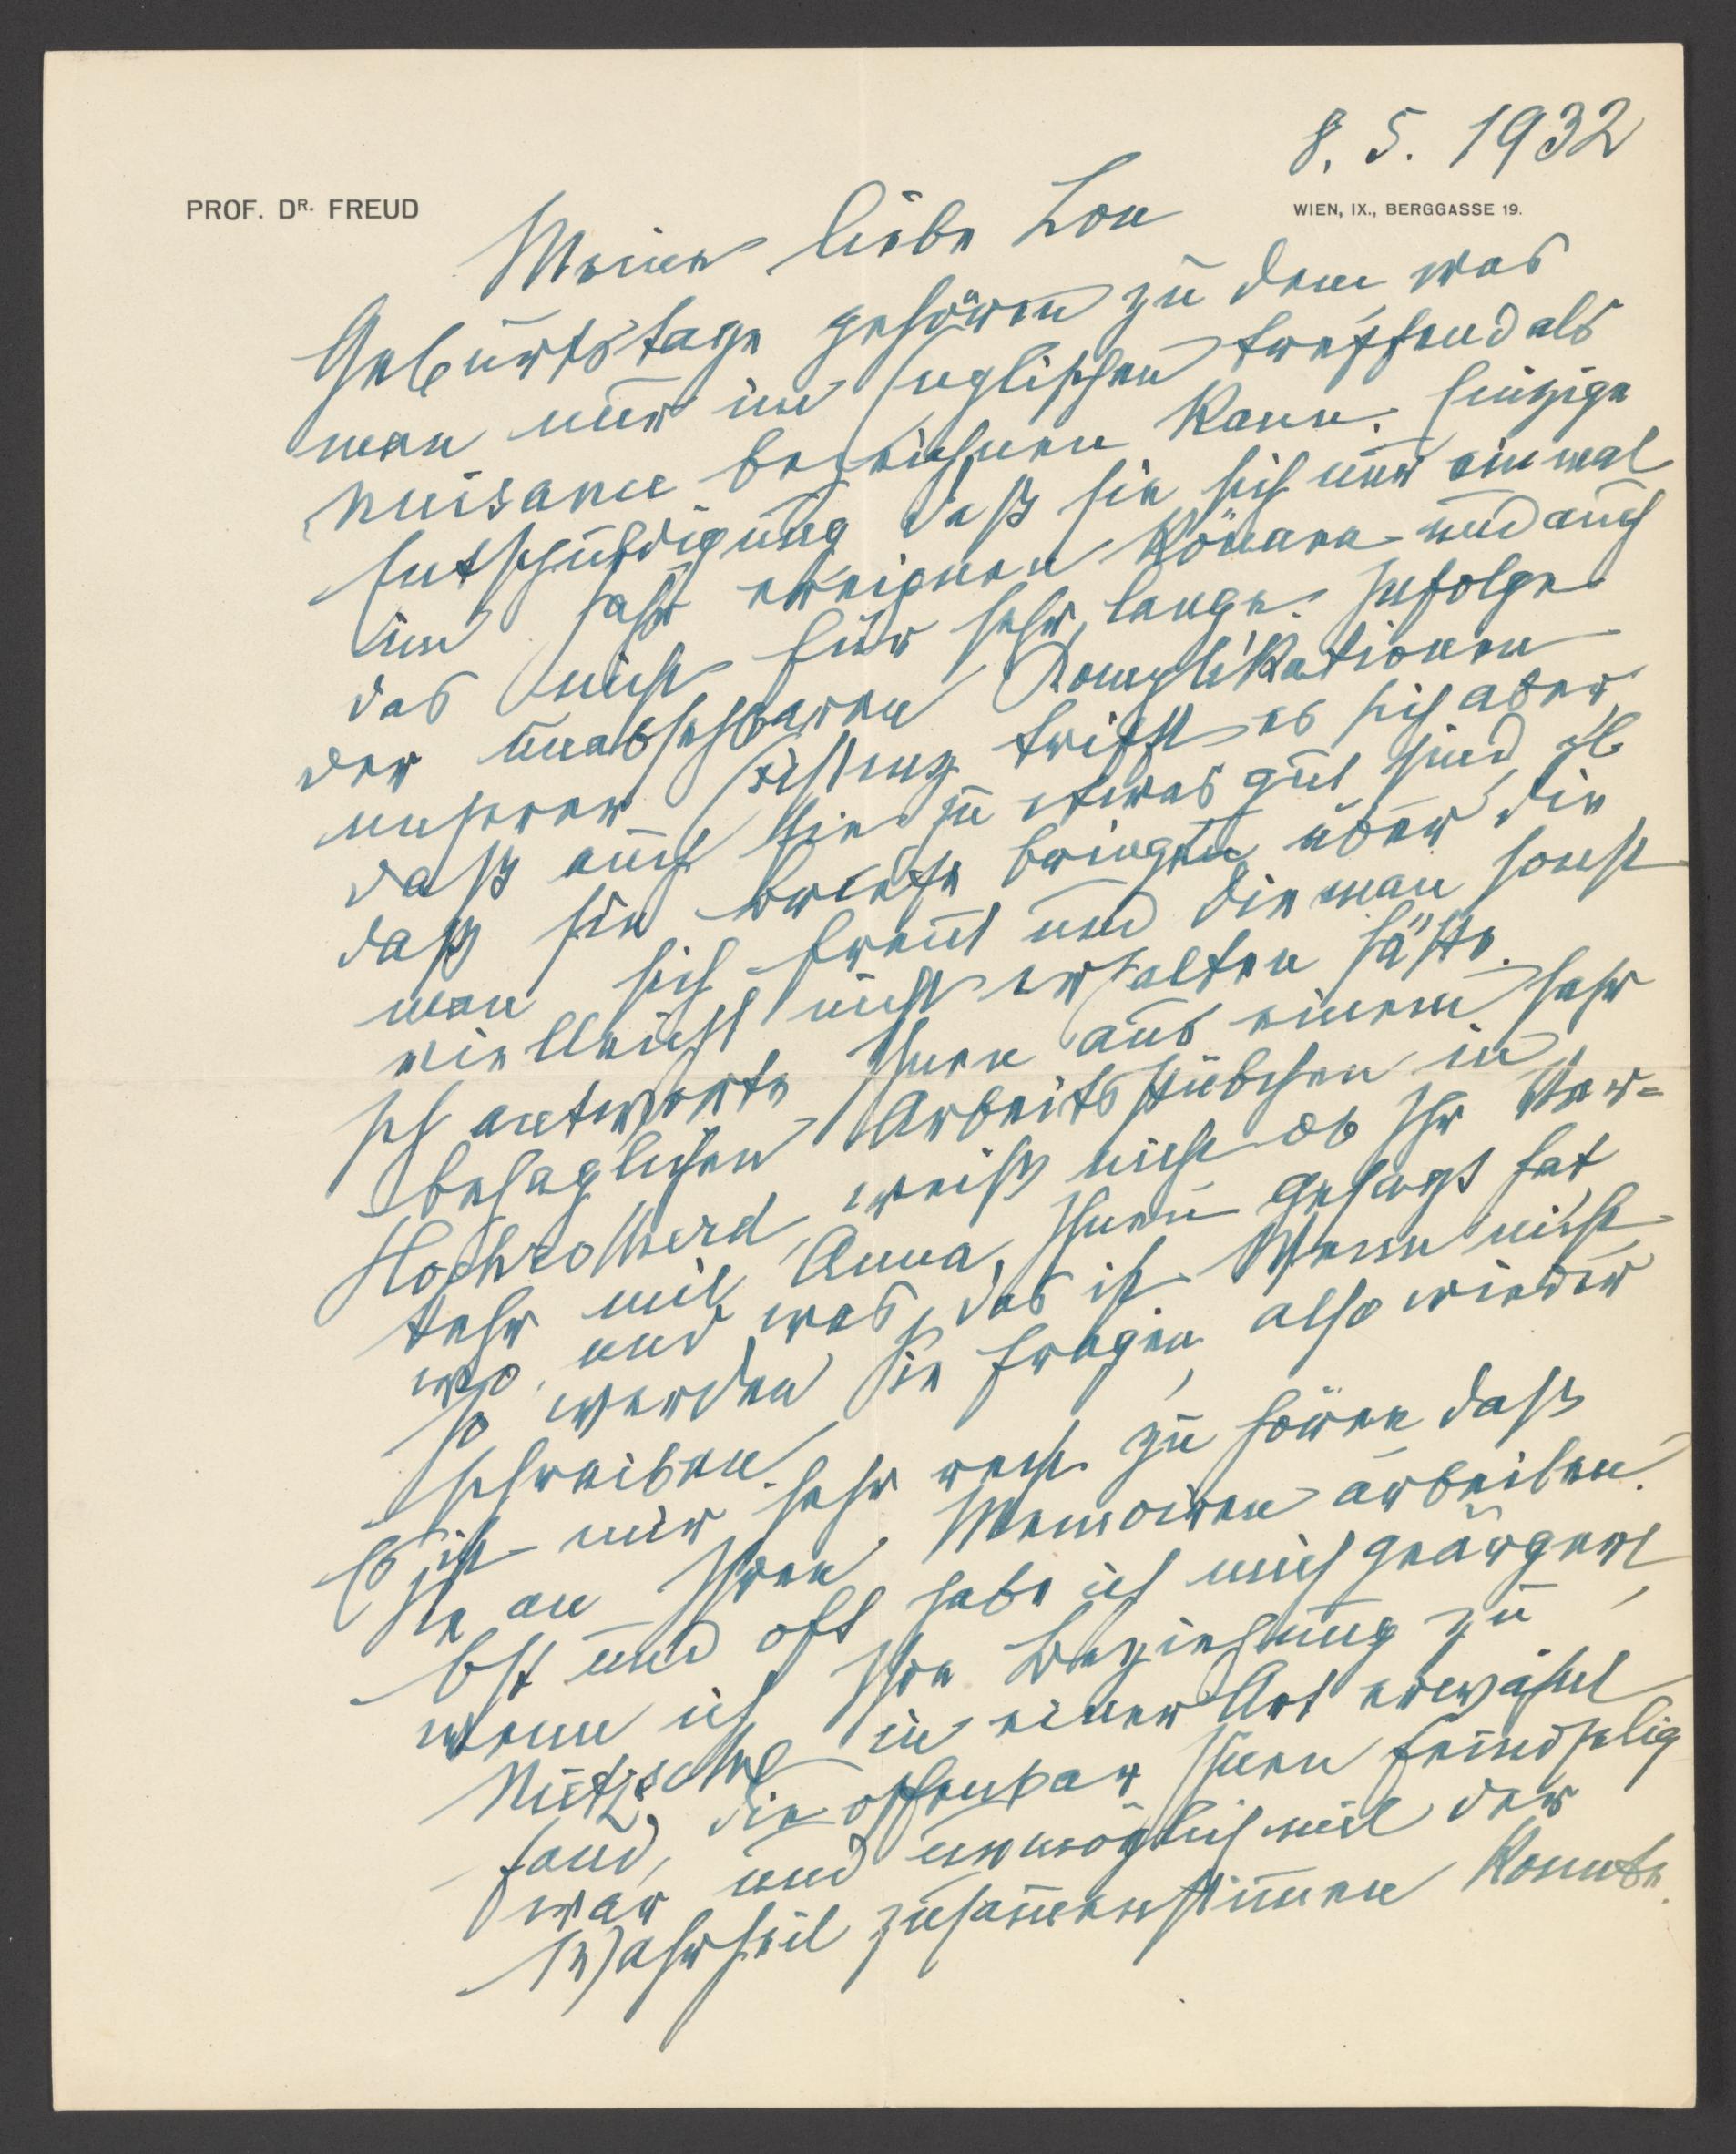 8. 5. 1932
PROF. DR. FREUD
WIEN, IX., BERGGASSE 19.
Meine liebe Lou
Geburtstage gehören zu dem was
man nur im Englischen treffend als
nuisance bezeichnen kann. Einzige
Entschuldigung daß sie sich nur einmal
im Jahr ereignen können und auch
das nicht für sehr lange. Zufolge
der unabsehbaren Komplikationen
unserer Existenz trifft es sich aber,
daß auch sie zu etwas gut sind,
daß sie Briefe bringen über die
man sich freut und die man sonst
vielleicht nicht erhalten hätte.
Ich antworte Ihnen aus einem sehr
behaglichen Arbeitsstübchen in
Hochroterd, weiß nicht ob Ihr Ver-
kehr mit Anna Ihnen gesagt hat
wo und was das ist. Wenn nicht
so werden Sie fragen, also wieder
schreiben.
Es ist mir sehr recht zu hören daß
Sie an Ihren Memoiren arbeiten.
Oft und oft habe ich mich geärgert,
wenn ich Ihre Beziehung zu
Nietzsche in einer Art erwähnt
fand, die offenbar Ihnen feindselig
war und unmöglich mit der
Wahrheit zusammenstimmen konnte.